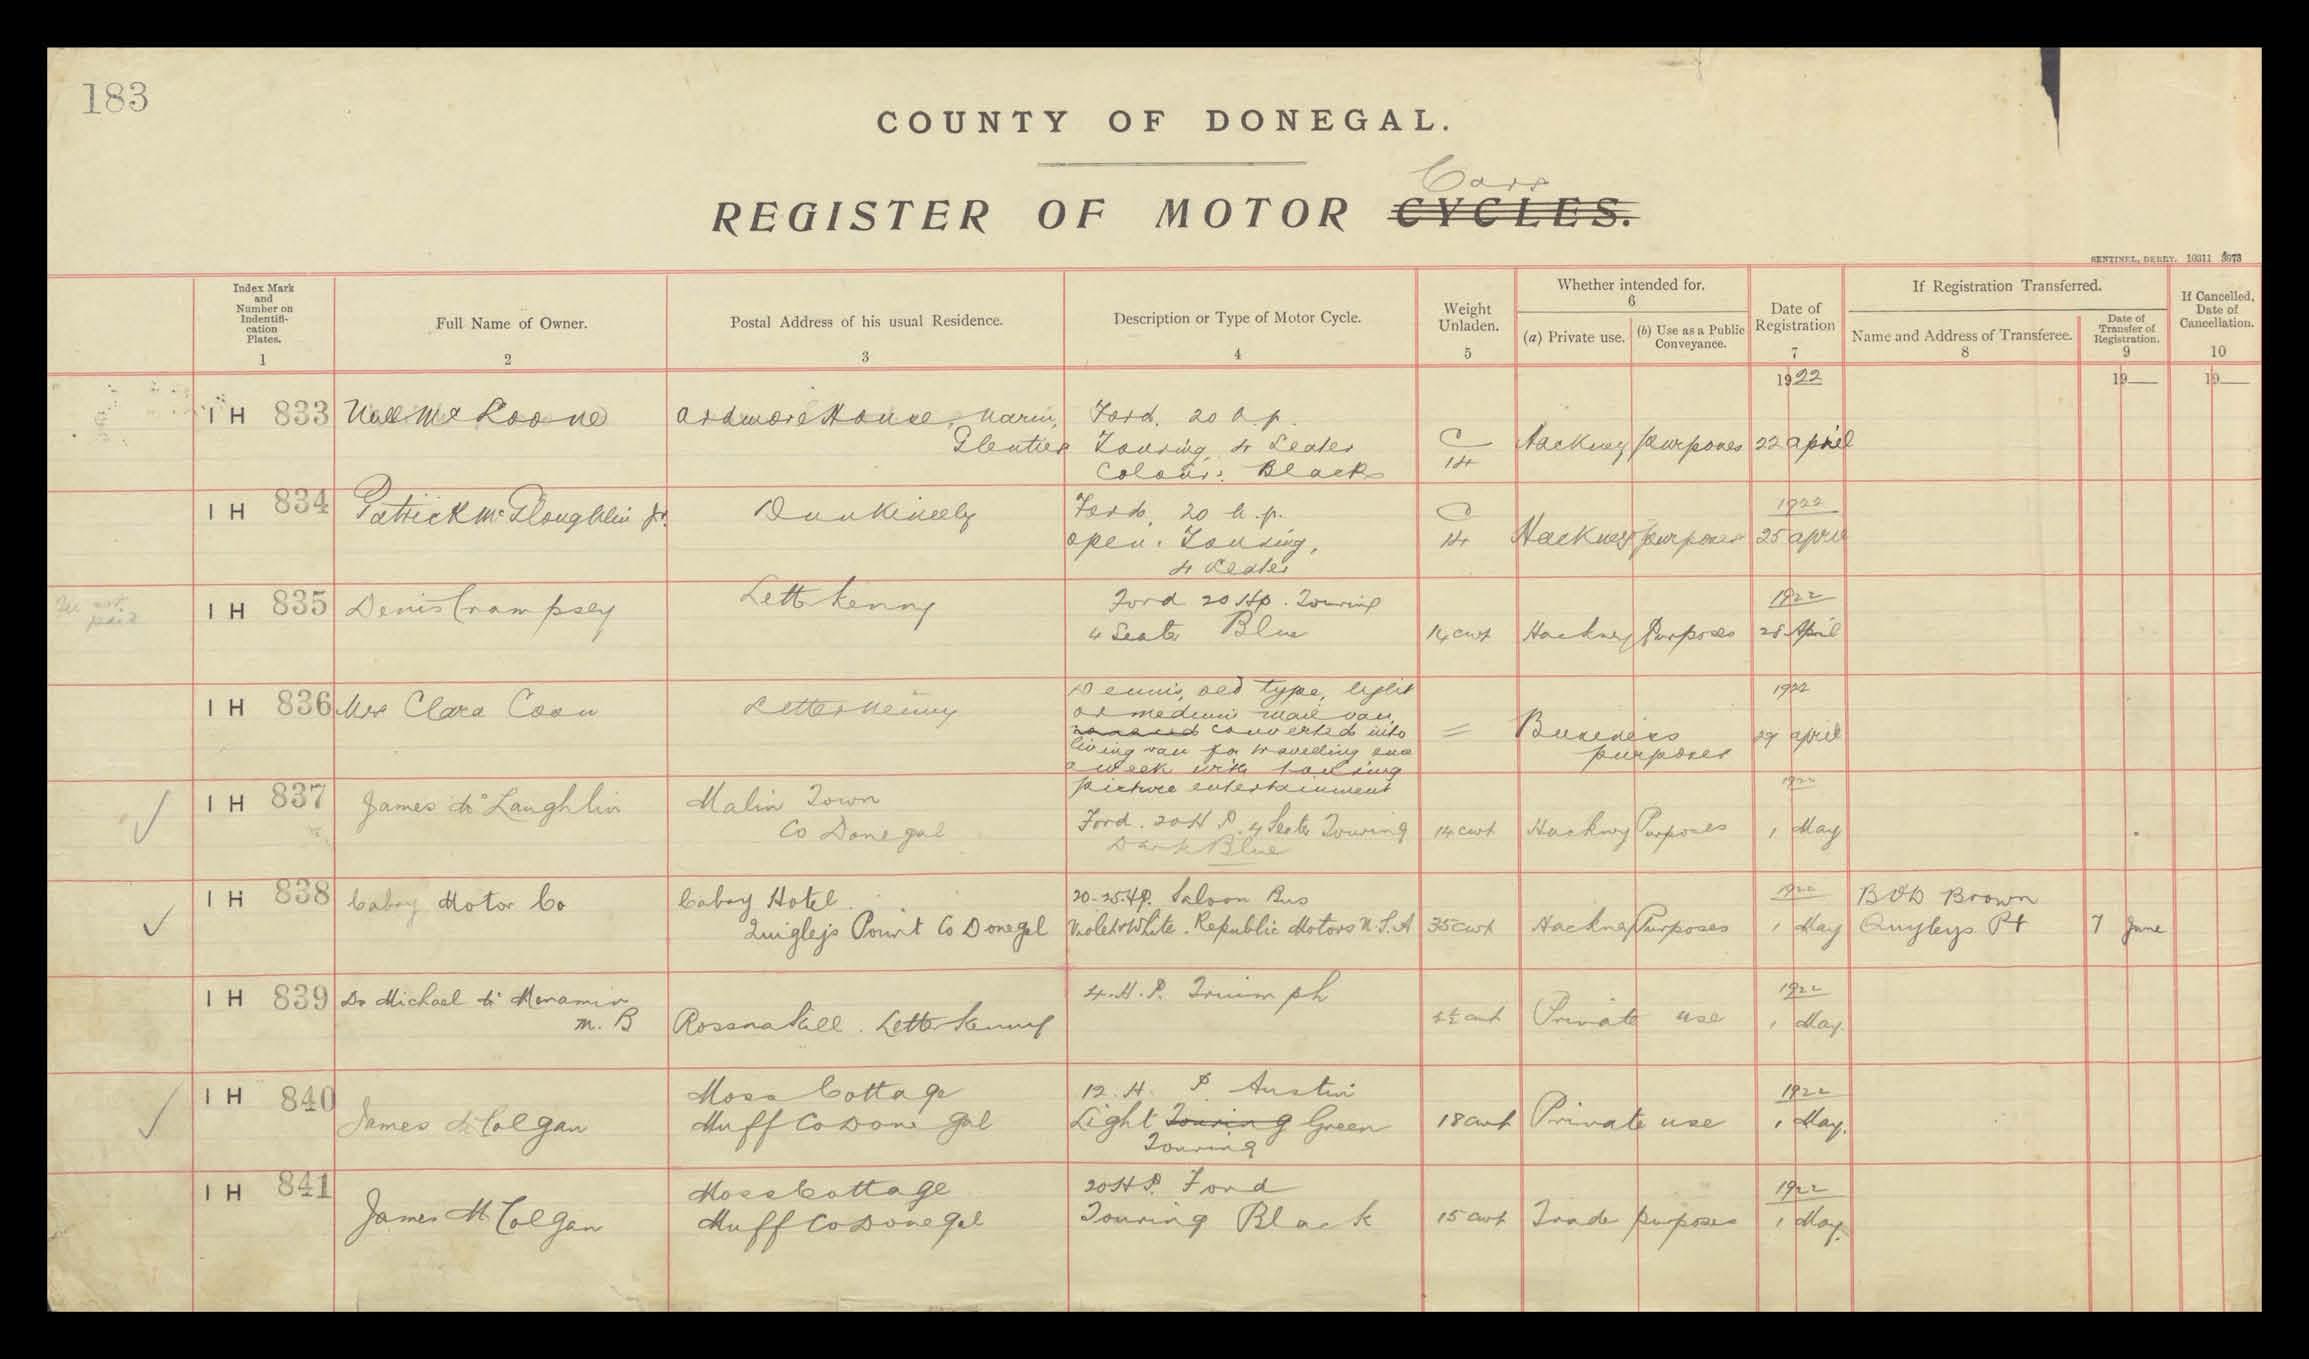 183
COUNTY OF DONEGAL.
Cars
REGISTER OF MOTOR CYCLES.
SENTINEL, DERRY. 10311
Index Mark and Number on Indentifi- cation Plates. 1
Full Name of Owner. 2
Postal Address of his usual Residence. 3
Description or Type of Motor Cycle. 4
Weight Unladen. 5
Whether intended for. 6
(a) Private use.
(b) Use as a Public Conveyance.
Date of Registration 7
If Registration Transferred.
Name and Address of Transferee. 8
Date of Transfer of Registration. 9
If Cancelled, Date of Cancellation. 10
1922 19 19
I H 833 Mc Loone Ardmore House, Narin, Ford, 20 h.p.
Glenties Touring, 4 Seater C Hackney purposes 22 April
Colour: Black 14
I H 834 Patrick McGloughlin Jr. Dunkineely Ford, 20 h.p. C 1922
open. Touring, 14 Hackney purposes 25 April
4 Seater
I H 835 Denis Crampsey Letterkenny Ford 20 Hp. Touring 1922
not paid
4 Seater Blue 14 cwt Hackney Purposes 28 April
I H 836 Mrs Clara Coon Letterkenny Dennis, old type, light 1922
or medium mail van,
converted into = Business 29 April
living van for travelling once purposes
a week with touring
picture entertainment
I H 837 James Mc Laughlin Malin Town 1922
Co Donegal Ford. 20 H P. 4 Seater Touring 14 cwt Hackney Purposes 1 May
Dark Blue
I H 838 Cabry Motor Co Cabry Hotel 20-25 Hp. Saloon Bus 1922 B & D Brown
Quigley's Point Co Donegal Violet & White. Republic Motors U.S.A 35 cwt Hackney Purposes 1 May Quigleys Pt 7 June
I H 839 Dr Michael Mc Menamin 4. H. P. Triumph 1922
M. B Rossnakill. Letterkenny cwt Private use 1 May.
I H 840 Moss Cottage 12. H. P. Austin 1922
James McColgan Muff Co Donegal Light Touring Green 18 cwt Private use 1 May.
Touring
I H 841 Moss Cottage 20 H P. Ford 1922
James McColgan Muff Co Donegal Touring Black 15 cwt Trade purposes 1 May.